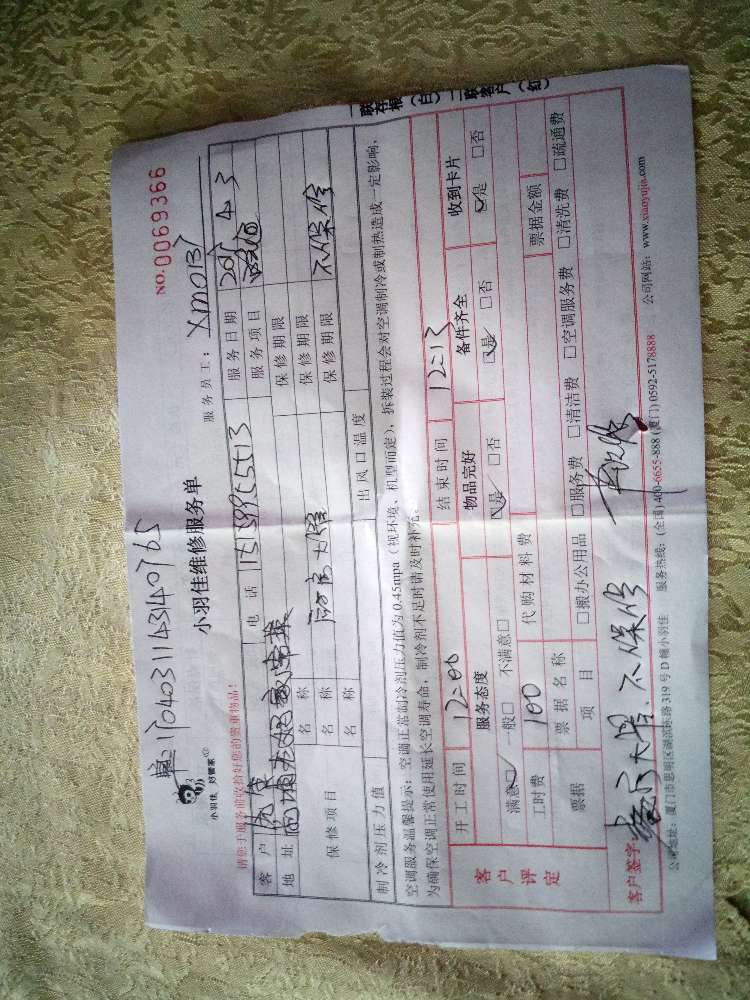 NO.0069366
单:1704031143140765
小羽佳 好管家
小羽佳维修服务单
服务员工: XM0131
请您于服务前收拾好您的贵重物品!
客户 电话 服务日期 4 3
地址 服务项目
保修项目 名称 保修期限
名称 保修期限 不保修
名称 保修期限
制冷剂压力值 出风口温度
空调服务温馨提示:空调正常制冷剂压力值为0.45mpa(视环境、机型而定),拆装过程会对空调制冷或制热造成一定影响,
为确保空调正常使用延长空调寿命,制冷剂不足时请及时补充。
客户评定 开工时间 12:00 结束时间 12:13
服务态度 物品完好 备件齐全 收到卡片
满意□ 一般□ 不满意□ □是 □否 □是 □否 □是 □否
工时费 100 代购材料费 票据金额
票据 票据名称
项目 □搬办公用品 □服务费 □清洁费 □空调服务费 □清洗费 □疏通费
客户签字: 不保修
公司地址:厦门市思明区湖滨南路319号D幢小羽佳 服务热线:(全国)400-6655-888 (厦门)0592-5178888 公司网站:www.xiaoyujia.com
一联存根(白)二联客户(红)